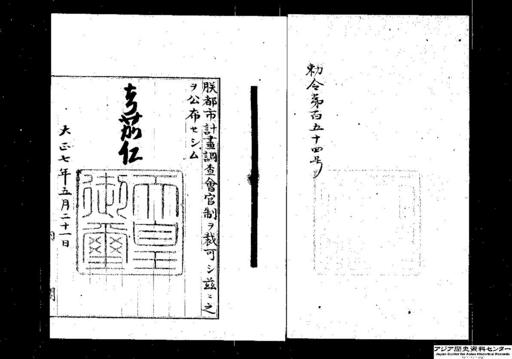 勅令第百五十四号
朕都市計畫調査會官制ヲ裁可シ茲ニ之
ヲ公布セシム
嘉仁
天皇御璽
大正七年五月二十一日
アジア歴史資料センター
Japan Center for Asian Historical Records